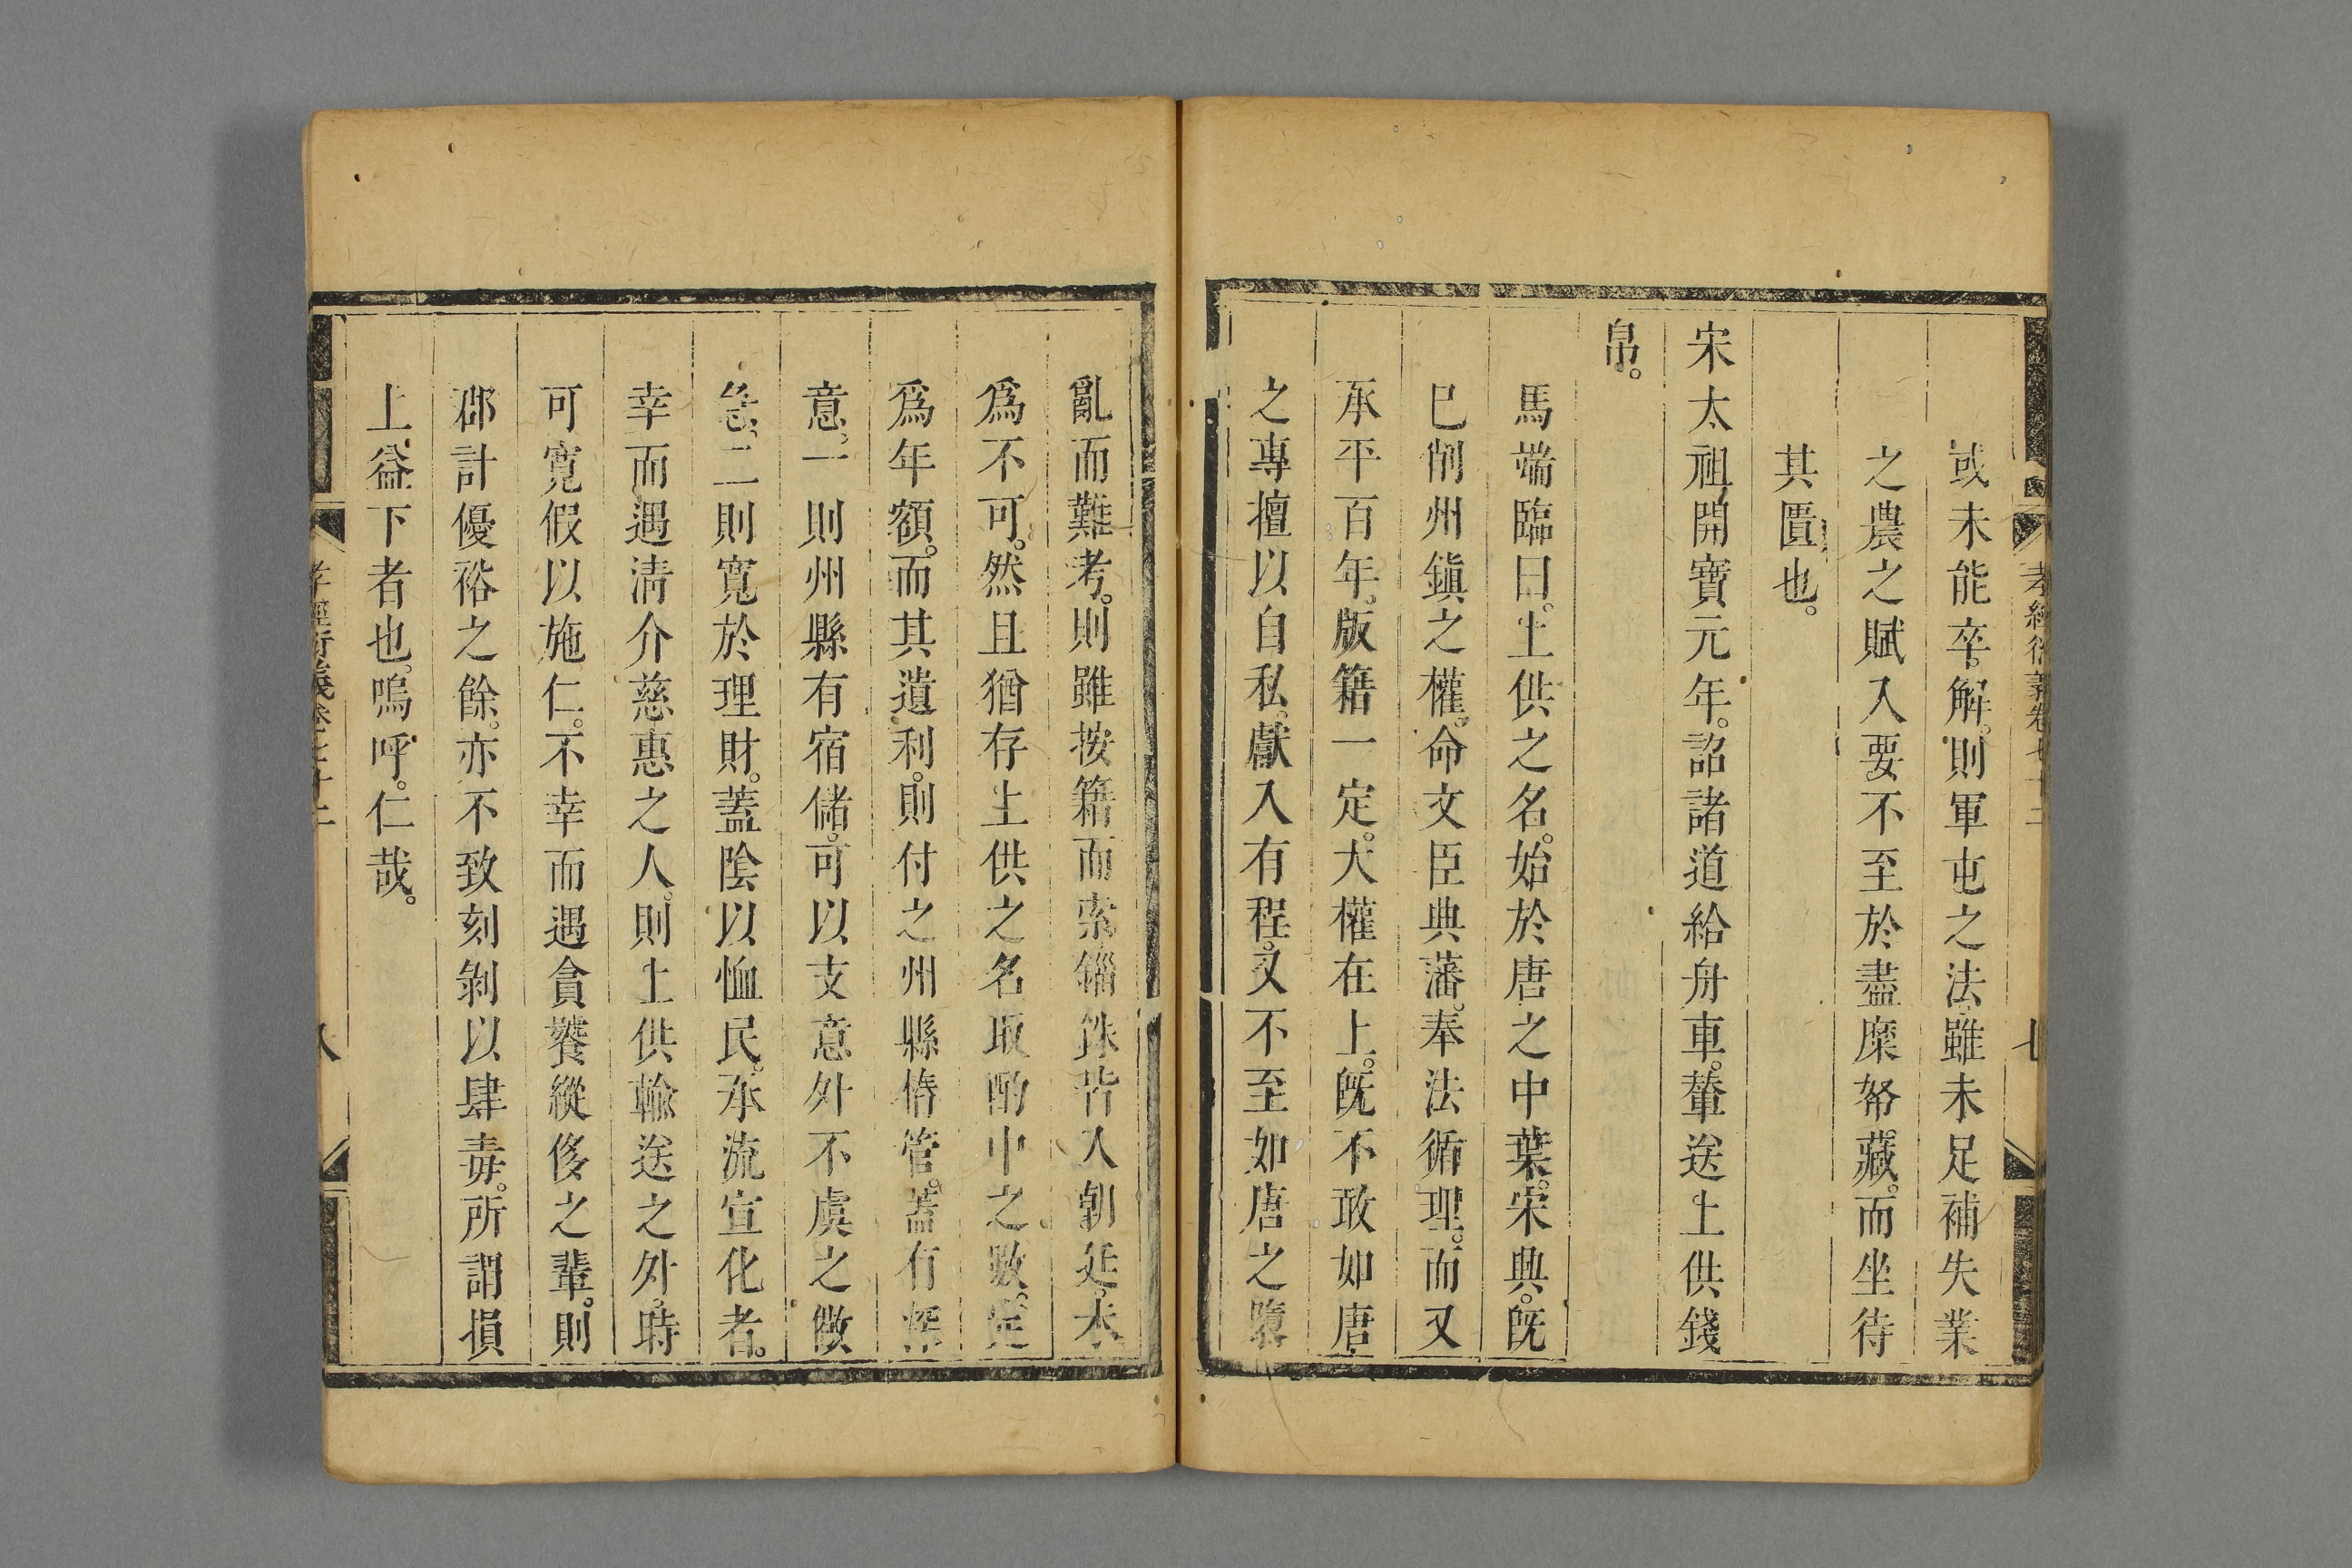 孝經衍義卷七十二
七
或未能卒解。則軍屯之法。雖未足補失業
之農之賦入要不至於盡糜帑藏。而坐待
其匱也。
宋太祖開寶元年。詔諸道給舟車。輦送上供錢
帛。
馬端臨曰。上供之名。始於唐之中葉。宋興。旣
已削州鎮之權。命文臣典藩。奉法循理。而又
承平百年。版籍一定。大權在上。旣不敢如唐
之專擅以自私。獻入有程。又不至如唐之隳
亂而難考。則雖按籍而索錙銖皆入朝廷。未
爲不可。然且猶存上供之名取酌中之數。定
爲年額。而其遺利。則付之州縣樁管。蓋有深
意。一則州縣有宿儲。可以支意外不虞之儆
急。二則寬於理財。蓋陰以恤民。承流宣化者。
幸而遇淸介慈惠之人。則上供輸送之外。時
可寬假以施仁。不幸而遇貪饕縱侈之輩。則
郡計優裕之餘。亦不致刻剝以肆毒。所謂損
上益下者也。嗚呼。仁哉。
孝經衍義卷七十二
八